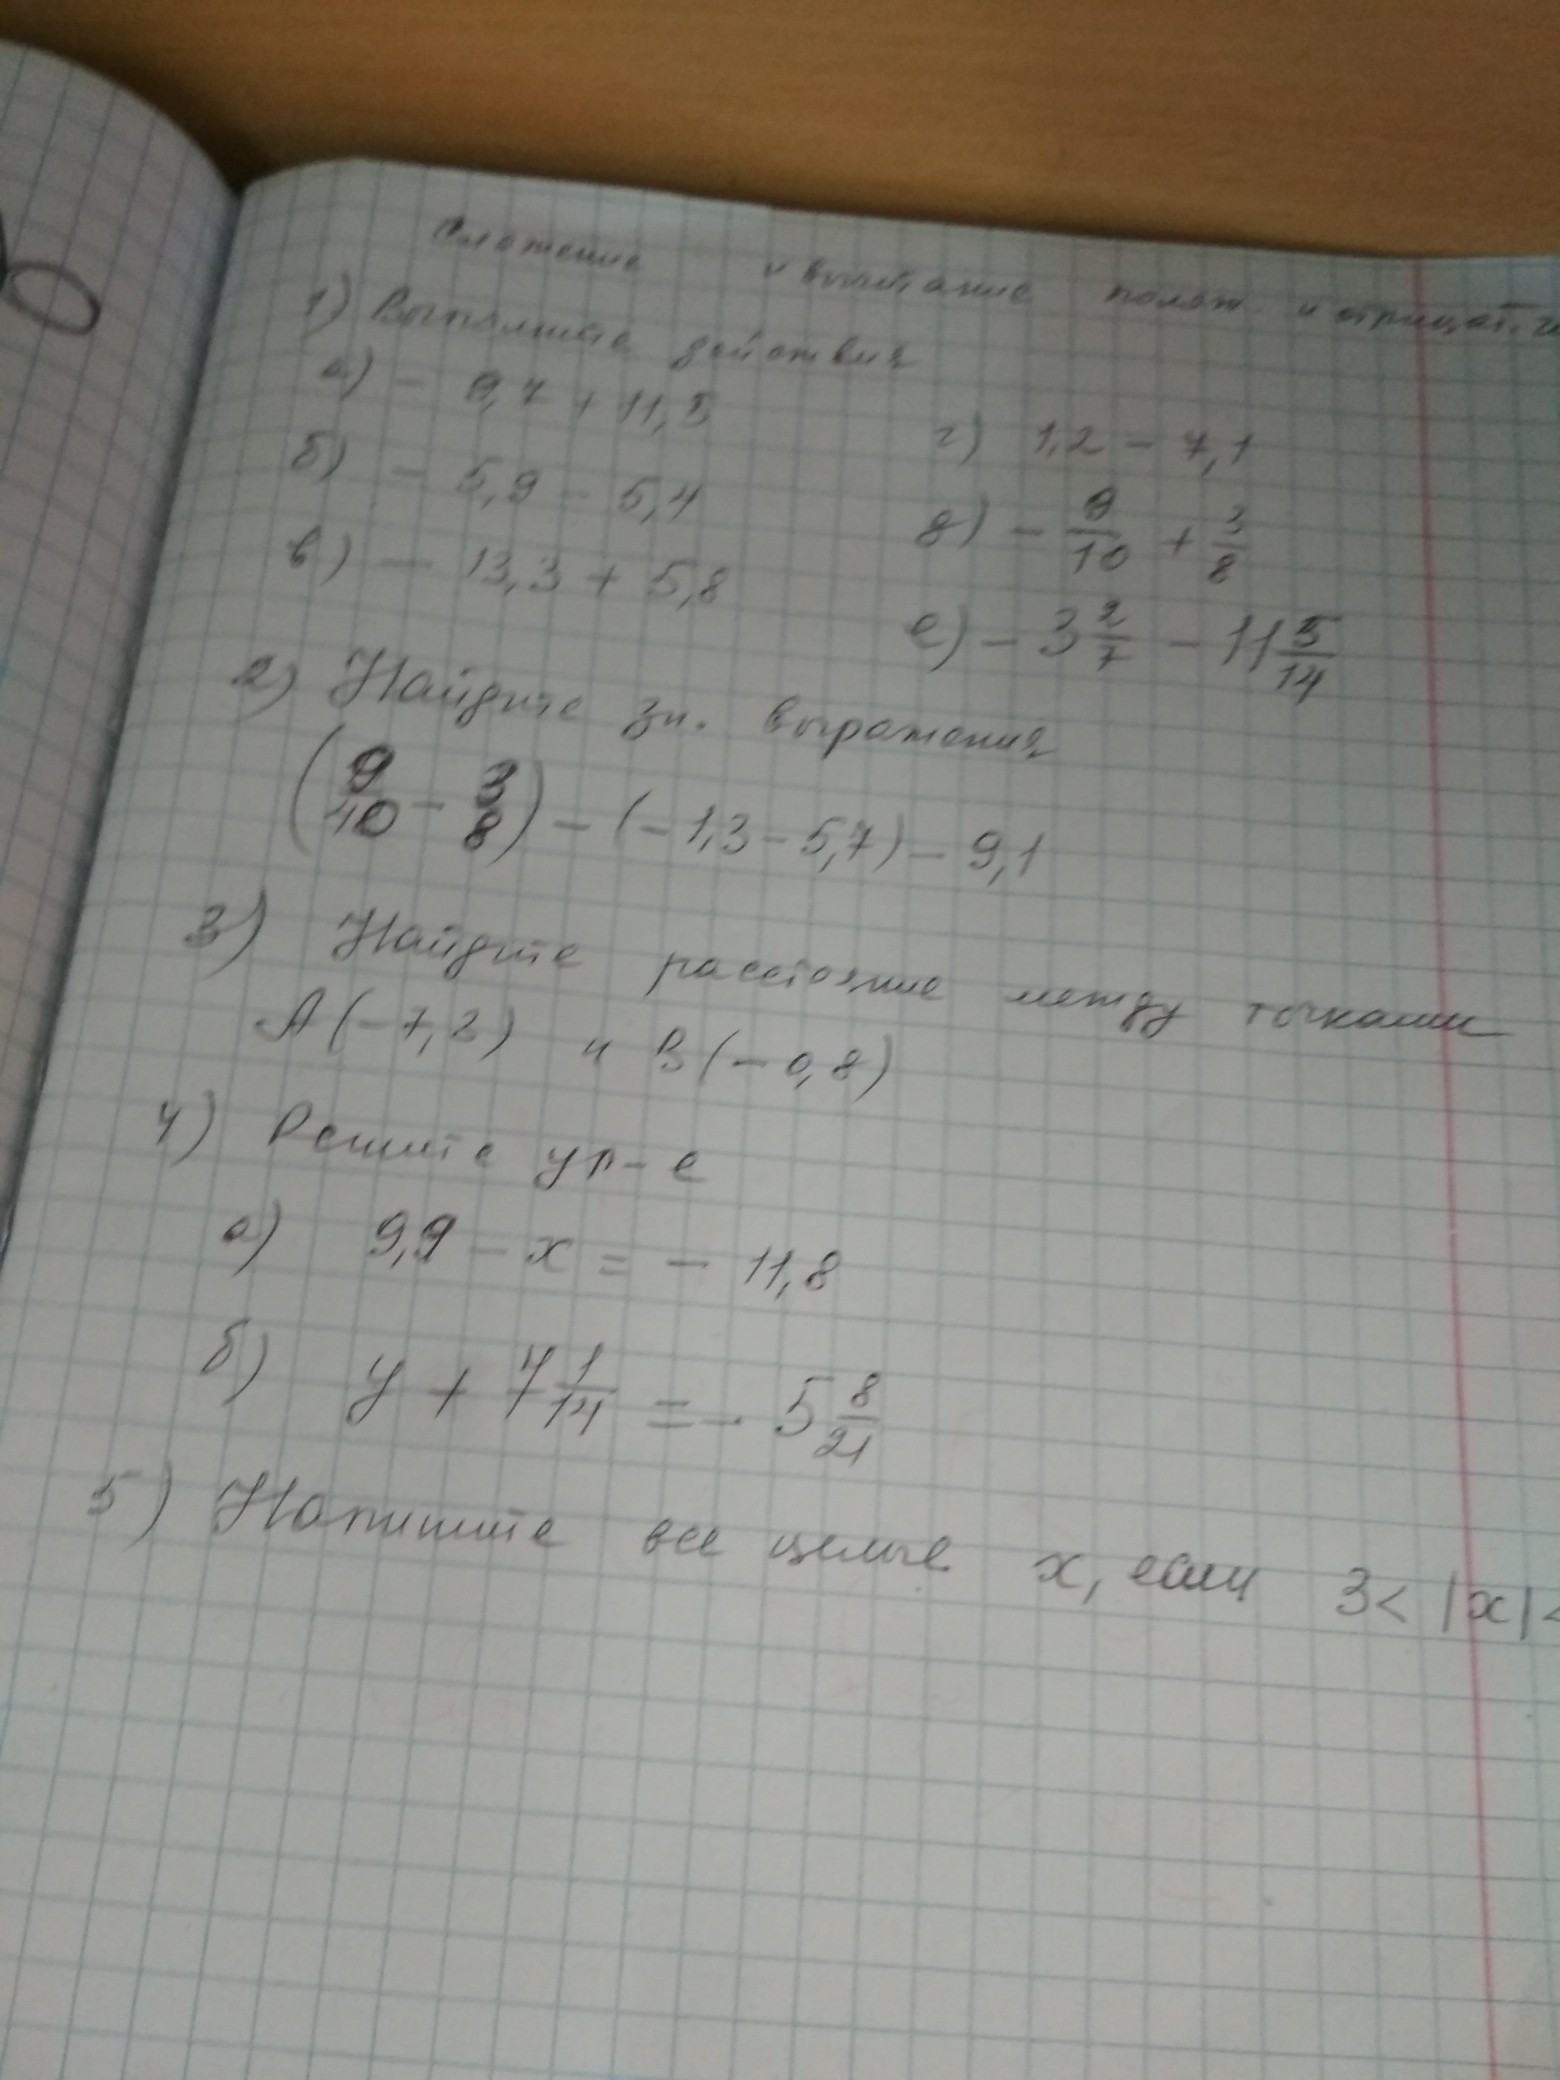 Сложение и вычитание полож. и отрицат.
1) Выполните действия
а) - 9,7 + 11,5
г) 1,2 - 7,1
б) - 5,9 - 5,4
д) - 9/10 + 3/8
в) - 13,3 + 5,8
е) - 3 2/7 - 11 5/14
2) Найдите зн. выражения
(9/10 - 3/8) - (- 1,3 - 5,7) - 9,1
3) Найдите расстояние между точками
А(- 7,2) и В(- 0,8)
4) Решите ур-е
а) 9,9 - x = - 11,8
б) y + 1/14 = - 5 8/21
5) Напишите все целые x, если 3 < |x| <